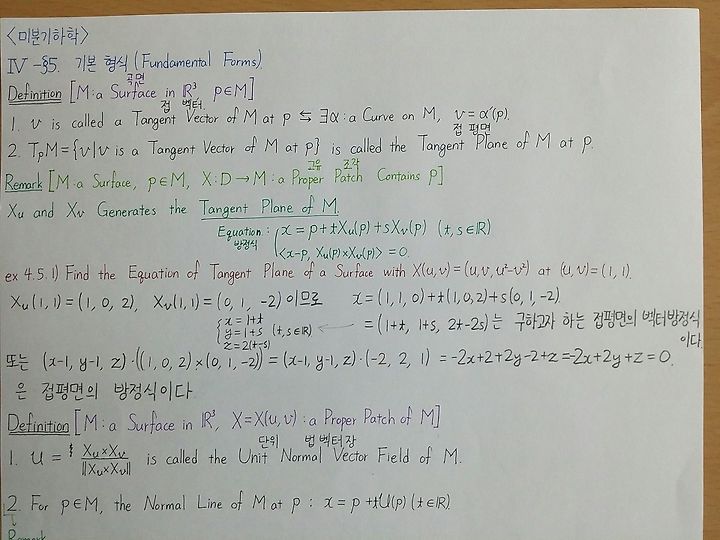 <미분기하학>
Ⅳ-§5. 기본 형식 (Fundamental Forms)
곡면
Definition [M:a Surface in ℝ³, p∈M]
접 벡터
1. v is called a Tangent Vector of M at p ⇆ ∃α:a Curve on M, v=α'(p).
접 평면
2. TpM={v|v is a Tangent Vector of M at p} is called the Tangent Plane of M at p.
고유 조각
Remark [M:a Surface, p∈M, X:D→M:a Proper Patch Contains p]
Xu and Xv Generates the Tangent Plane of M.
Equation: x=p+tXu(p)+sXv(p) (t,s∈ℝ)
방정식 <x-p, Xu(p)×Xv(p)>=0.
ex 4.5.1) Find the Equation of Tangent Plane of a Surface with X(u,v)=(u,v,u²-v²) at (u,v)=(1,1).
Xu(1,1)=(1,0,2), Xv(1,1)=(0,1,-2) 이므로 x=(1,1,0)+t(1,0,2)+s(0,1,-2).
{x=1+t
y=1+s (t,s∈ℝ) ← =(1+t, 1+s, 2t-2s)는 구하고자 하는 접평면의 벡터방정식
z=2(t-s)
이다.
또는 (x-1, y-1, z)·((1,0,2)×(0,1,-2))=(x-1, y-1, z)·(-2, 2, 1)=-2x+2+2y-2+z=-2x+2y+z=0.
은 접평면의 방정식이다
Definition [M:a Surface in ℝ³, X=X(u,v):a Proper Patch of M]
단위 법벡터장
1. U= Xu×Xv / ||Xu×Xv|| is called the Unit Normal Vector Field of M.
2. For p∈M, the Normal Line of M at p : x=p+tU(p) (t∈ℝ)
Remark